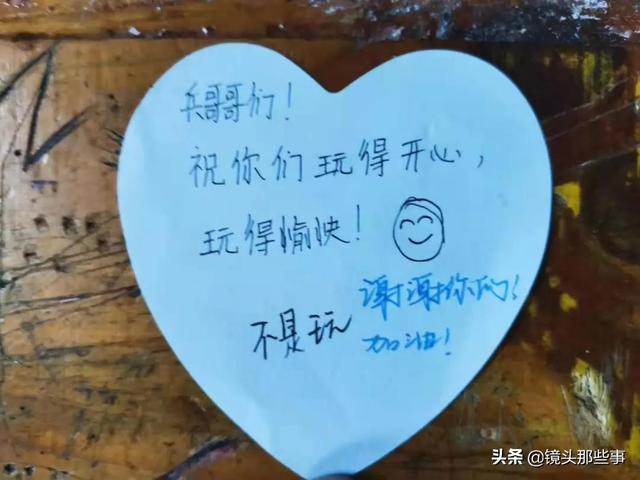 兵哥哥们！
祝你们玩得开心，
玩得愉快！
不是玩
谢谢你们！
加油！
头条 @镜头那些事